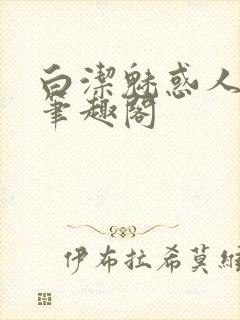 白潔魅惑人
筆趣閣
伊布拉希莫維